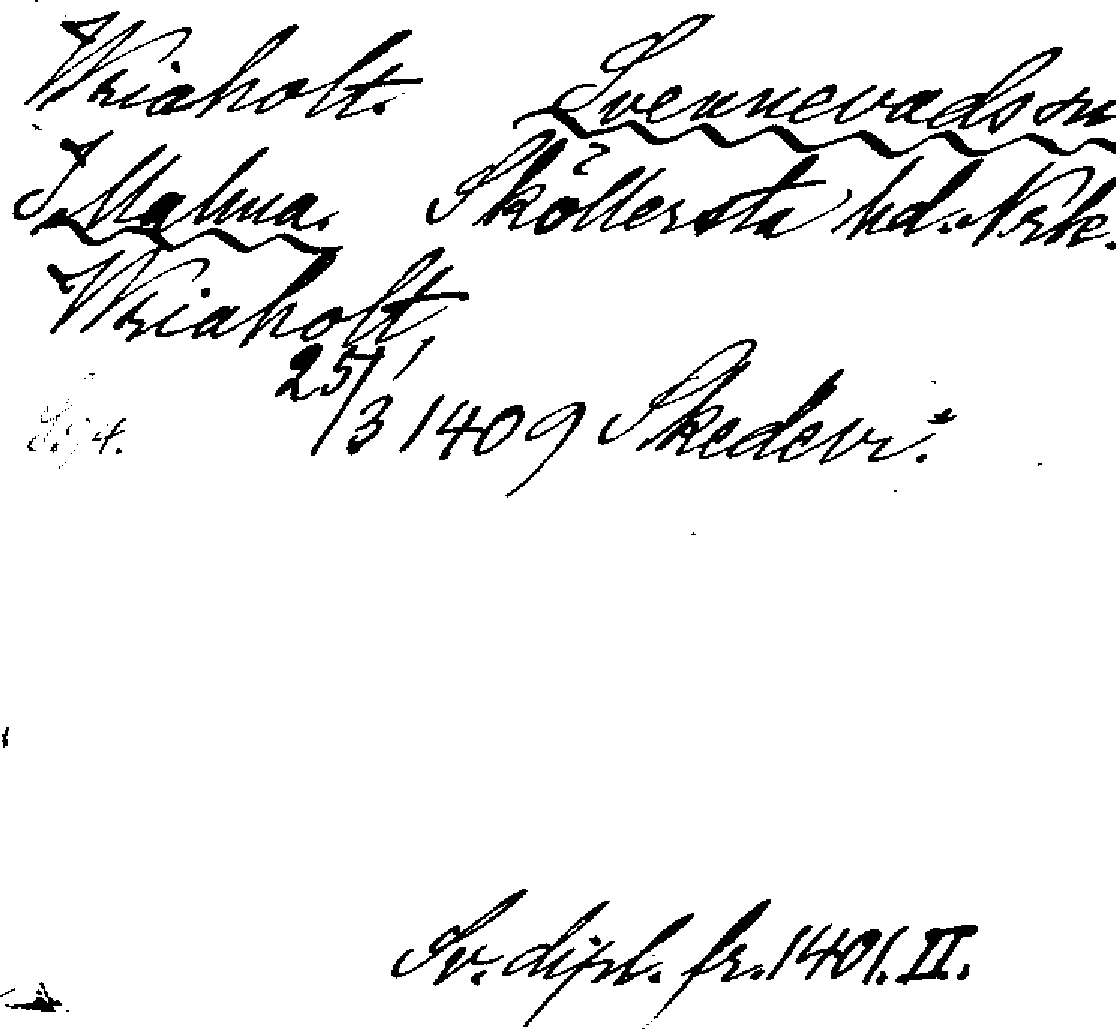 Wriaholt. Svennevads sn
I Malma. Sköllersta hd. Nrk.
Wriaholt
25/3 1409 Skedevi.
Sv. dipl. fr. 1401. II.